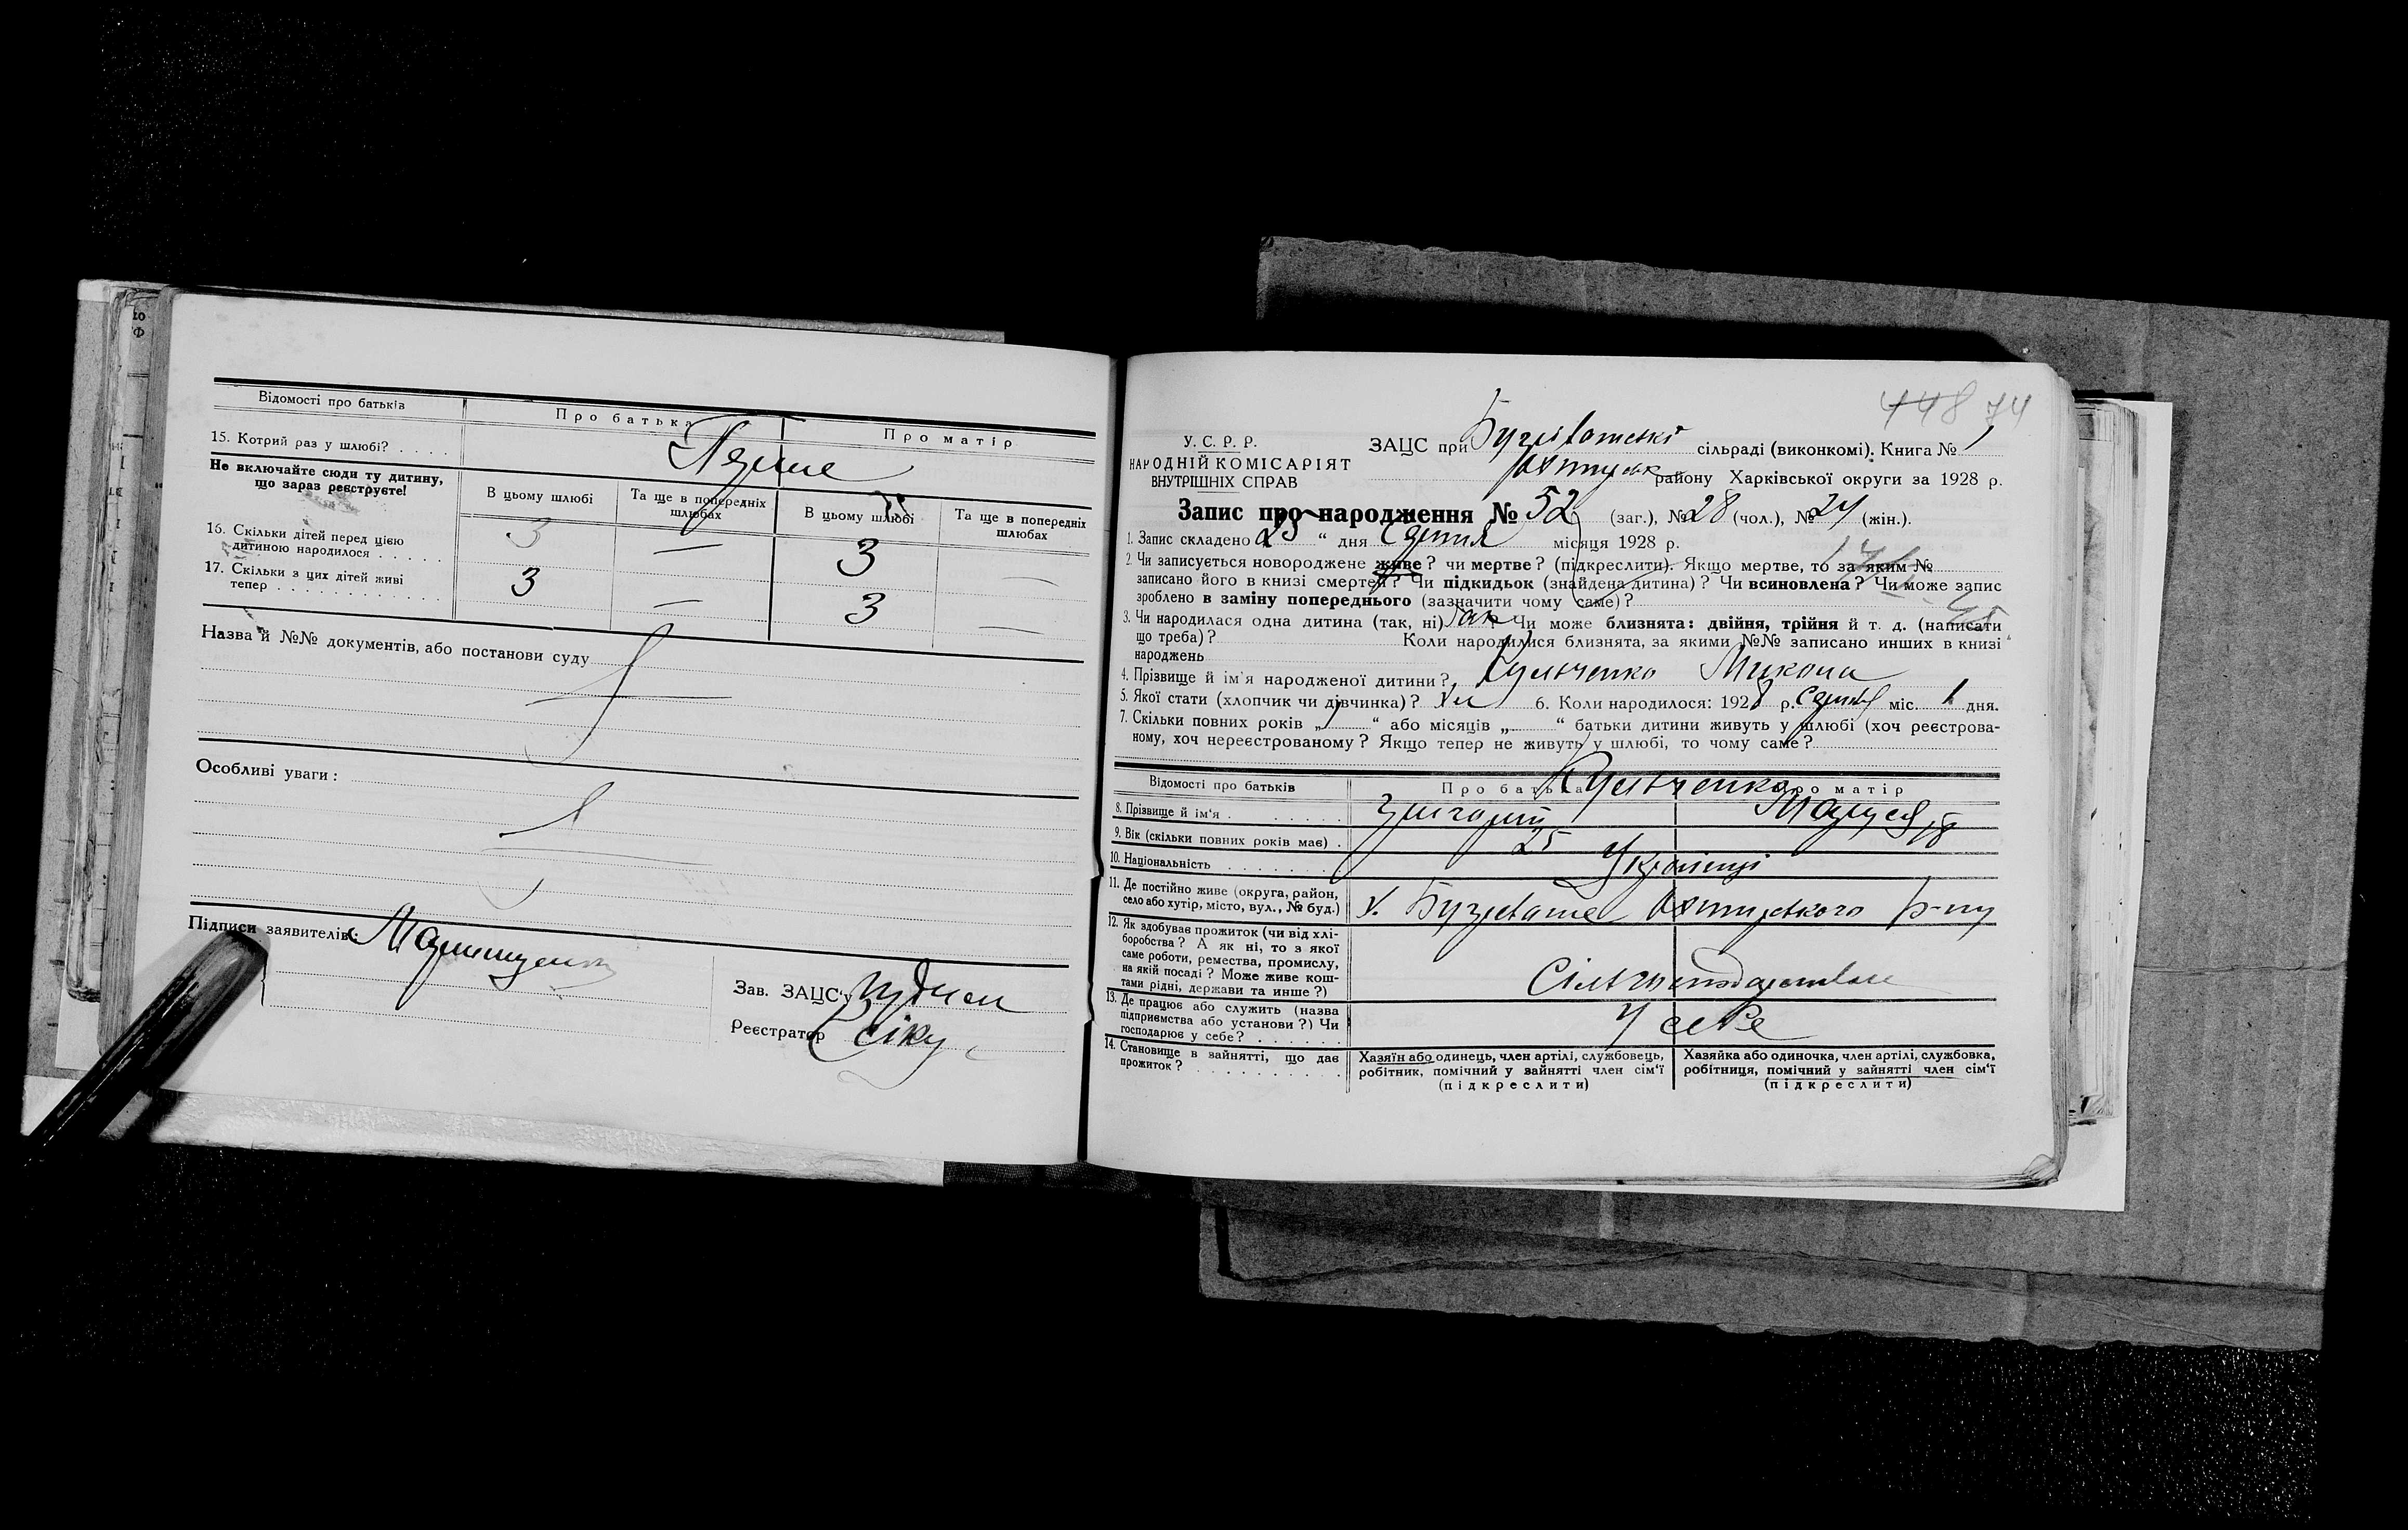 Відомості про батьків
Про батька
Про матір
15. Котрий раз у шлюбі? . . . .
Перше
Не включайте сюди ту дитину,
що зараз реєструєте!
В цьому шлюбі
Та ще в попередніх
шлюбах
В цьому шлюбі
Та ще в попередніх
шлюбах
16. Скільки дітей перед цією
дитиною народилося . . . . .
3 — 3 —
17. Скільки з цих дітей живі
тепер . . . . . . . . . . . .
3 — 3 —
Назва й №№ документів, або постанови суду
Особливі уваги:
Підписи заявителів:
Зав. ЗАЦС'у
Реєстратор
448 74
У. С. Р. Р.
НАРОДНІЙ КОМІСАРІЯТ
ВНУТРІШНІХ СПРАВ
ЗАЦС при сільраді (виконкомі). Книга № 1
району Харківської округи за 1928 р.
Запис про народження № 52 (заг.), № 28 (чол.), № 24 (жін.).
1. Запис складено 25 “ дня Серпня місяця 1928 р.
2. Чи записується новороджене живе? чи мертве? (підкреслити). Якщо мертве, то за яким №
записано його в книзі смертей? Чи підкидьок (знайдена дитина)? Чи всиновлена? Чи може запис
зроблено в заміну попереднього (зазначити чому саме)?
3. Чи народилася одна дитина (так, ні) Так ? Чи може близнята: двійня, трійня й т. д. (написати
що треба)? Коли народилися близнята, за якими №№ записано инших в книзі
народжень
4. Прізвище й ім'я народженої дитини? Микола
5. Якої стати (хлопчик чи дівчинка)? Хл 6. Коли народилося: 1928 р. Серпня міс. 1 дня.
7. Скільки повних років „ “ або місяців „ “ батьки дитини живуть у шлюбі (хоч реєстрова-
ному, хоч нереєстрованому? Якщо тепер не живуть у шлюбі, то чому саме?
Відомості про батьків
Про батька
Про матір
8. Прізвище й ім'я . . . . . . . .
Григорій Маруся
9. Вік (скільки повних років має) .
25
10. Національність . . . . . . . .
Українці
11. Де постійно живе (округа, район,
село або хутір, місто, вул., № буд.)
х. Охтирського р-ну
12. Як здобуває прожиток (чи від хлі-
боробства? А як ні, то з якої
саме роботи, ремества, промислу,
на якій посаді? Може живе кош-
тами рідні, держави та инше?)
13. Де працює або служить (назва
підприємства або установи?) Чи
господарює у себе? . . . . . .
У себе
14. Становище в зайнятті, що дає
прожиток? . . . . . . . . . .
Хазяїн або одинець, член артілі, службовець,
робітник, помічний у зайнятті член сім'ї
(підкреслити)
Хазяйка або одиночка, член артілі, службовка,
робітниця, помічний у зайнятті член сім'ї
(підкреслити)